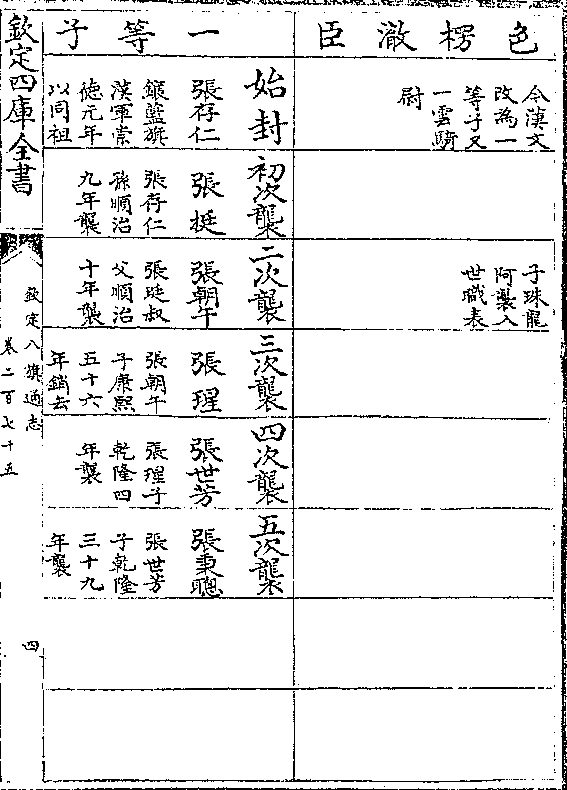 色楞澈臣
今漢文
改為一
等子又
一雲騎
尉
子珠龍
阿襲入
世職表
一等子
始封
張存仁
鑲藍旗
漢軍崇
徳元年
以同祖
初次襲
張挺
張存仁
孫順治
九年襲
二次襲
張朝午
張挺叔
父順治
十年襲
三次襲
張瑆
張朝午
子康熙
五十六
年銷去
四次襲
張世芳
張瑆子
乾隆四
年襲
五次襲
張秉聰
張世芳
子乾隆
三十九
年襲
欽定四庫全書
欽定八旗通志
卷二百七十五
四